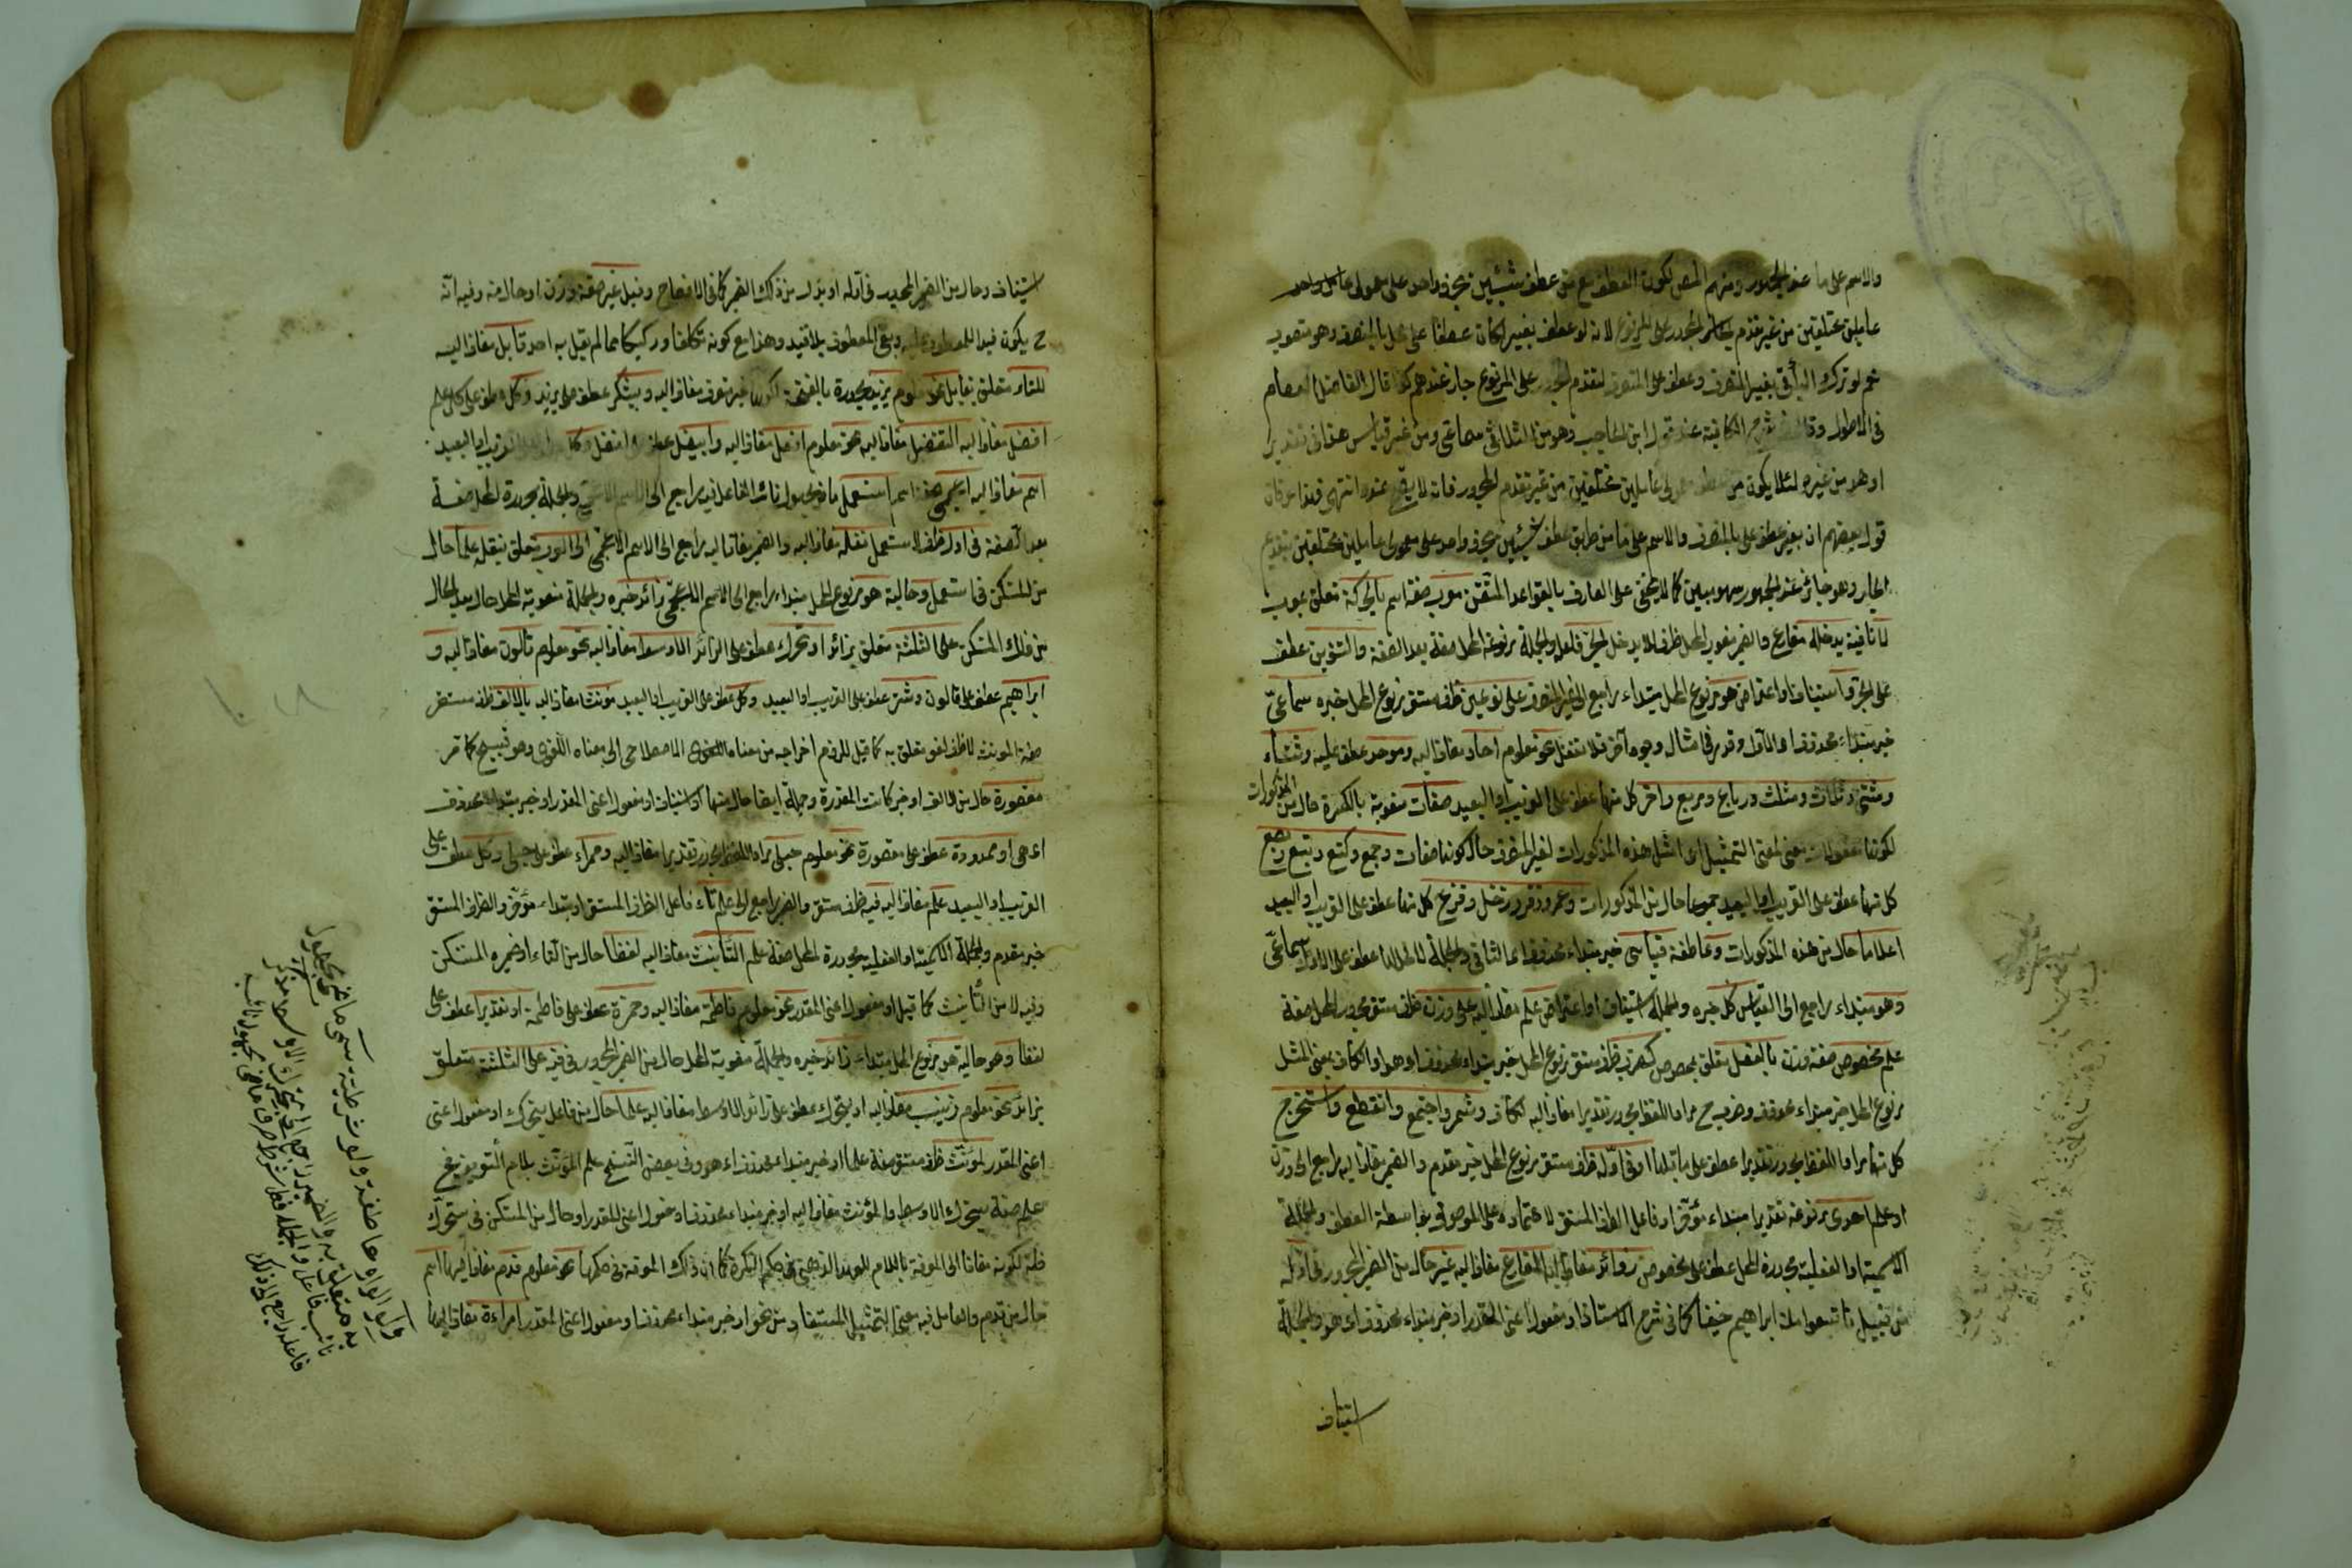 والاسم على ما عند الجمهور ومنهم المص لكون العطف مع من عطف شيئين بحرف واحد على معمولى عامل واحد
عاملين مختلفين من غير تقدم المجرور على المرفوع لانه لو عطف بغير لكان عطفا على محل بالمنصرف وهو منصوب
نعم لو ترك الباء في بغير المنصرف وعطف على المنصرف لتقدم المجرور على المرفوع جاز عندهم كما قال الفاضل العصام
في الاطول وقال في شرح الكافية عند قول ابن الحاجب وهو من الثلاثى سماعى ومن غيره قياس هذا في تقدير
او هو من غيره لئلا يكون من عطف معمولى عاملين مختلفين من غير تقدم المجرور فانه لا يصح عنده انتهى فهذا عرفان
قول بعضهم ان بغير عطف على بالمنصرف والاسم على ما من طريق عطف شيئين بحرف واحد على معمولى عاملين مختلفين بتقديم
الجار وهو جائز عند الجمهور سهو مبين كما لا يخفى على العارف بالقواعد المتقن معرب صفة اسم بالحركة متعلق بمعرب
لا نافية يدخله مضارع والضمير منصوب المحل ظرف لا يدخل الجر فاعله والجملة مرفوعة المحل صفة بعد الصفة والتنوين عطف
على الجر واستيناف او اعتراض هو مرفوع المحل مبتداء راجع الى غير المنصرف على نوعين ظرف مستقر مرفوع المحل خبره سماعى
خبر مبتداء محذوف اى الاول وقدر في امثال وجوه آخر فلا تغفل نحو معلوم احاد مضاف اليه وموحد عطف عليه وثناء
ومثنى وثلاث ومثلث ورباع ومربع واخر كل منها عطف على القريب او البعيد صفات منصوبة بالكسرة حال من المذكورات
لكونها مفعولات معنى لمعنى التمثيل اى امثل هذه المذكورات لغير المنصرف حال كونها صفات وجمع وكتع وبتع وبصع
كل منها عطف على القريب او البعيد جموعا حال من المذكورات وعمر وزفر وزحل وقزح كل منها عطف على القريب او البعيد
اعلاما حال من هذه المذكورات وعاطفة قياسى خبر مبتداء محذوف اى الثانى والجملة لا محل لها عطف على الاول سماعى
وهو مبتداء راجع الى القياس كل خبره والجملة استيناف او اعتراض علم مضاف اليه على وزن ظرف مستقر مجرور المحل صفة
علم مخصوص صفة وزن بالفعل متعلق بمخصوص كضرب ظرف مستقر مرفوع المحل خبر مبتداء محذوف اى هو او الكاف بمعنى المثل
مرفوع المحل خبر مبتداء محذوف وضرب ح مراد اللفظ مجرور تقديرا مضاف اليه للكاف وشمر واجتمع وانقطع واستخرج
كل منها مراد اللفظ مجرور تقديرا عطف على ما قبلها او في اوله ظرف مستقر مرفوع المحل خبر مقدم والضمير مضاف اليه راجع الى وزن
او علم احدى مرفوعة تقديرا مبتداء مؤخر او فاعل الظرف المستقر لاعتماده على الموصوف بواسطة العطف والجملة
الاسمية او الفعلية مجرورة المحل عطف على مخصوص زوائد مضاف اليها المضارع مضاف اليه غير حال من الضمير المجرور في اوله
من قبيل فاتبعوا ملة ابراهيم حنيفا كما في شرح الاستاذ او مفعول اعنى المقدر او خبر مبتداء محذوف اى هو والجملة
استيناف
استيناف وحال من الضمير المجرور في اوله او بدل من ذلك الضمير كما في الافصاح وقيل غير صفة وزن او حال منه وفيه انه
ح يكون قيدا للمعطوف عليه ويبقى المعطوف بلا قيد وهذا مع كونه تكلفا وركيكا مما لم يقل به احد قابل مضاف اليه
للتاء متعلق بقابل نحو معلوم يزيد مجرورة بالفتحة لكونها غير منصرف مضاف اليه ويشكر عطف على يزيد وكل عطف على كل علم
افضل مضاف اليه التفضيل مضاف اليه نحو معلوم افضل مضاف اليه وابيض عطف على افضل وكل عطف على القريب او البعيد
اسم مضاف اليه اعجمى صفة اسم استعمل ماض مجهول نائب الفاعل فيه راجع الى الاسم الاعجمى والجملة مجرورة المحل صفة
بعد الصفة في اول ظرف لاستعمل نقله مضاف اليه والضمير مضاف اليه راجع الى الاسم الاعجمى الى العرب متعلق بنقله علما حال
من المستكن في استعمل وحالية هو مرفوع المحل مبتداء راجع الى الاسم الاعجمى زائد خبره والجملة منصوبة المحل حال بعد الحال
من ذلك المستكن على الثلثة متعلق بزائد او تحرك عطف على الزائد الاوسط مضاف اليه نحو معلوم قالون مضاف اليه و
ابراهيم عطف على قالون وشتر عطف على القريب او البعيد وكل عطف على القريب او البعيد مونث مضاف اليه بالالف ظرف مستقر
صفة المونث لا ظرف لغو متعلق به كما قيل للزوم اخراجه من معناه الاصطلاحى الى معناه اللغوى وهو قبيح كما مر
مقصورة حال من الالف او خبر كانت المقدرة وجملة ايضا حال منها او استيناف او مفعول اعنى المقدر او خبر مبتداء محذوف
اى هى او ممدودة عطف على مقصورة نحو معلوم حبلى مراد اللفظ مجرور تقديرا مضاف اليه وحمراء عطف على حبلى وكل عطف على
القريب او البعيد علم مضاف اليه فيه ظرف مستقر والضمير راجع الى علم تاء فاعل الظرف المستقر او مبتداء مؤخر والظرف المستقر
خبر مقدم والجملة الاسمية او الفعلية مجرورة المحل صفة علم التأنيث مضاف اليه لفظا حال من التاء او ضميره المستكن
وفيه لا من التأنيث كما قيل او مفعول اعنى المقدر نحو معلوم فاطمة مضاف اليه وحمزة عطف على فاطمة او تقديرا عطف على
لفظا وهو حالية هو مرفوع المحل مبتداء زائد خبره والجملة منصوبة المحل حال من الضمير المجرور في فيه على الثلثة متعلق
بزائد نحو معلوم زينب مضاف اليه او يتحرك عطف على زائد الاوسط مضاف اليه علما حال من فاعل يتحرك او مفعول اعنى
اعنى المقدر لمؤنث ظرف مستقر صفة علما او خبر مبتداء محذوف اى هو وفي بعض النسخ علم المؤنث بلام التعريف فح
علم صفة يتحرك الاوسط والمؤنث مضاف اليه او خبر مبتداء محذوف او مفعول اعنى المقدر او حال من المستكن في يتحرك
لكونه مضافا الى المعرفة باللام للعهد الذهنى في حكم النكرة كما ان ذلك المعرفة في حكمها نحو معلوم قدم مضاف اليها اسم
حال من قدم والعامل فيه معنى التمثيل المستفاد من نحو او خبر مبتداء محذوف او مفعول اعنى المقدر امراءة مضاف اليها
ولو الواو عاطفة ولو شرطية سمى ماض مجهول
به متعلق به والضمير راجع الى
نائب فاعل والجملة فعل شرط
فاعله راجع الى ذلك